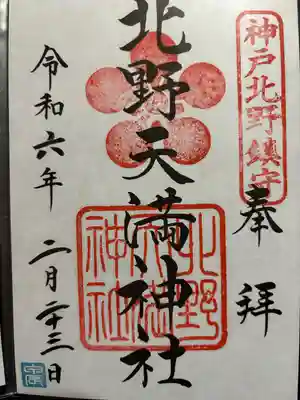 神戸北野鎮守
奉拝
北野天満神社
北野天満神社
令和六年 二月二十三日